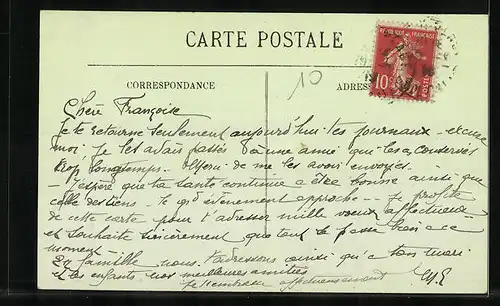 CARTE POSTALE
10
CORRESPONDANCE
ADRES
10
POSTES
Chère Françoise
Je te retourne seulement aujourd'hui tes journaux - excuse
moi. Je les avais passés à une amie qui les a conservés
trop longtemps. Merci de me les avoir envoyés.
- J'espère que ta santé continue à être bonne ainsi que
celle des tiens. Le gd évènement approche - Je profite
de cette carte pour t'adresser mille vœux affectueux
et souhaite sincèrement que tout se passe bien à ce
moment.
En famille nous t'adressons ainsi qu'à ton mari
et les enfants nos meilleures amitiés
Je t'embrasse affectueusement